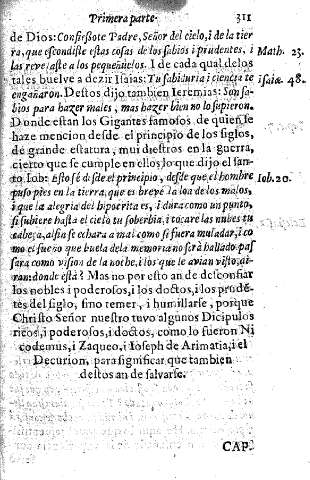 Primera parte. 311
de Dios: Confiessote Padre, Señor del cielo, i de la tier
ra, que escondiste estas cosas de los sabios i prudentes, i Math. 23.
las revelaste a los pequeñuelos. I de cada qual destos
tales buelve a dezir Isaias: Tu sabiduria i ciencia te Isaiæ 48.
engañaron. Destos dijo tambien Ieremias: Son sa-
bios para hazer males, mas hazer bien no lo supieron.
Donde estan los Gigantes famosos de quien se
haze mencion desde el principio de los siglos,
de grande estatura, mui diestros en la guerra,
cierto que se cumple en ellos lo que dijo el san-
to Iob: Esto sé desde el principio, desde que el hombre Iob. 20.
puso pies en la tierra, que es breve la loa de los malos,
i que la alegria del hipocrita es, i dura como un punto,
si subiere hasta el cielo tu soberbia, i tocare las nubes tu
cabeça, al fin se echara a mal como si fuera muladar, i co
mo el sueño que buela de la memoria no será hallado pas
sará como vision de la noche, i los que te avian visto, di-
ran: donde está? Mas no por esto an de desconfiar
los nobles i poderosos, i los doctos, i los prudē
tes del siglo, sino temer, i humillarse, porque
Christo Señor nuestro tuvo algunos Dicipulos
ricos, i poderosos, i doctos, como lo fueron Ni
codemus, i Zaqueo, i Ioseph de Arimatia, i el
Decurion, para significar que tambien
destos an de salvarse.
CAP.